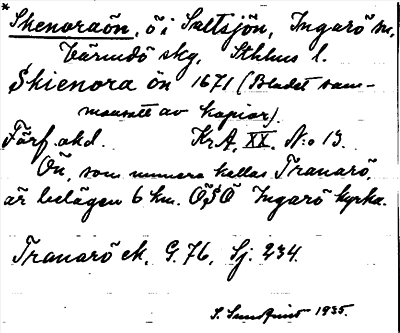 * Skenoraön, ö i Saltsjön, Ingarö sn,
Värmdö skg, Sthlms l.
Skienora ön 1671 (Bladet sam-
mansatt av kopior).
Förf. okd. Kr.A. XX. N:o 13.
Ön, som numera kallas Tranarö,
är belägen 6 km. ÖSÖ Ingarö kyrka.
Tranarö ek. G. 76, Sj. 234.
S. Sundquist 1935.